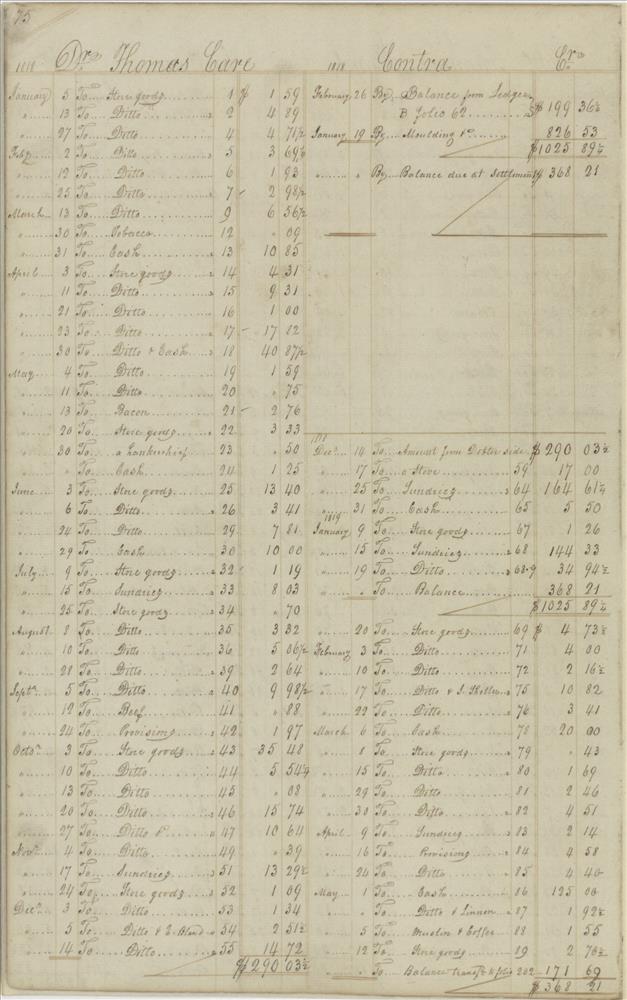 75
1818 Dr. Thomas Care 1818 Contra Cr.
January 5 To Store goods 1 $ 1 59
" 13 To Ditto 2 4 89
" 27 To Ditto 4 4 71½
Feby 2 To Ditto 5 3 69½
" 12 To Ditto 6 1 93
" 25 To Ditto 7 2 98½
March 13 To Ditto 9 6 56½
" 30 To Tobacco 12 " 09
" 31 To Cash 13 10 85
April 3 To Store goods 14 4 31
" 11 To Ditto 15 9 31
" 21 To Ditto 16 1 00
" 23 To Ditto 17 17 82
" 30 To Ditto & Cash 18 40 87½
May 4 To Ditto 19 1 59
" 11 To Ditto 20 " 75
" 13 To Bacon 21 2 76
" 20 To Store goods 22 3 33
" 30 To a Hankerchief 23 " 50
" " To Cash 24 1 25
June 3 To Store goods 25 13 40
" 6 To Ditto 26 3 41
" 24 To Ditto 29 7 81
" 29 To Cash 30 10 00
July 9 To Store goods 32 1 19
" 15 To Sundries 33 8 03
" 25 To Store goods 34 " 70
August 8 To Ditto 35 3 32
" 10 To Ditto 36 5 06½
" 28 To Ditto 39 2 64
Septr. 5 To Ditto 40 9 98½
" 12 To Beef 41 " 88
" 24 To Provisions 42 1 97
Octr. 3 To Store goods 43 35 48
" 10 To Ditto 44 5 54½
" 13 To Ditto 45 " 08
" 20 To Ditto 46 15 74
" 27 To Ditto 47 10 64
Novr. 4 To Ditto 49 " 39
" 17 To Sundries 51 13 29½
" 24 To Store goods 52 1 09
Decr. 3 To Ditto 53 1 34
" 5 To Ditto & 54 2 51½
" 14 To Ditto 55 14 72
$290 03½
February 26 By Balance from Ledger
B folio 62 $199 36½
January 19 By Moulding 826 53
$1025 89½
" " By Balance due at Settlement $368 21
1818
Decr. 14 To Amount from Debtor side $290 03½
" 17 To a Stove 59 17 00
" 25 To Sundries 64 164 61½
" 31 To Cash 65 5 50
1819
January 9 To Store goods 67 1 26
" 15 To Sundries 68 144 33
" 19 To Ditto 68.9 34 94½
" " To Balance 368 21
$1025 89½
" 20 To Store goods 69 $ 4 73½
February 3 To Ditto 71 4 00
" 10 To Ditto 72 2 16½
" 17 To Ditto & 75 10 82
" 22 To Ditto 76 3 41
March 6 To Cash 78 20 00
" 8 To Store goods 79 " 43
" 15 To Ditto 80 1 69
" 29 To Ditto 81 2 46
" 30 To Ditto 82 4 51
April 9 To Sundries 83 2 14
" 16 To Provisions 84 4 58
" 24 To Ditto 85 4 40
May 1 To Cash 86 125 00
" " To Ditto & Linnen 87 1 92½
" 5 To Muslin & Coffee 88 1 55
" 12 To Store goods 89 2 70½
" " To Balance transfd. to folio 202 171 69
$368 21